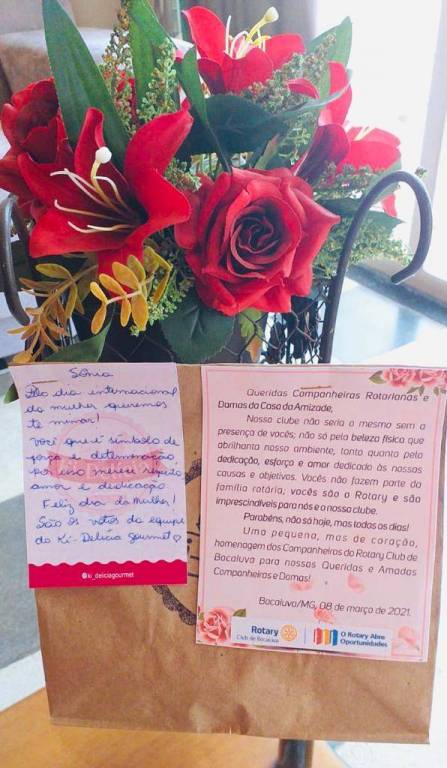 Sônia
Pelo dia internacional
da mulher queremos
te mimar!
Você que é símbolo de
força e determinação
por isso merece respeito
amor e dedicação.
Feliz dia da Mulher!
São os votos da equipe
do Ki-Delícia Gourmet
ki_deliciagourmet
Queridas Companheiras Rotarianas e
Damas da Casa da Amizade,
Nosso clube não seria o mesmo sem a
presença de vocês; não só pela beleza física que
abrilhanta nosso ambiente, tanto quanto pela
dedicação, esforço e amor dedicado às nossas
causas e objetivos. Vocês não fazem parte da
família rotária; vocês são o Rotary e são
imprescindíveis para nós e a nosso clube.
Parabéns, não só hoje, mas todos os dias!
Uma pequena, mas de coração,
homenagem dos Companheiros do Rotary Club de
Bocaiuva para nossas Queridas e Amadas
Companheiras e Damas!
Bocaiuva/MG, 08 de março de 2021.
Rotary
Club de Bocaiuva
O Rotary Abre
Oportunidades